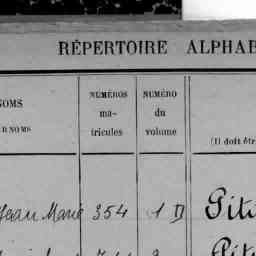 RÉPERTOIRE ALPHAB
NOMS
RNOMS
NUMÉROS
ma-
tricules
NUMÉRO
du
volume
(Il doit êtr
Jean Marie 354 1 D Piti